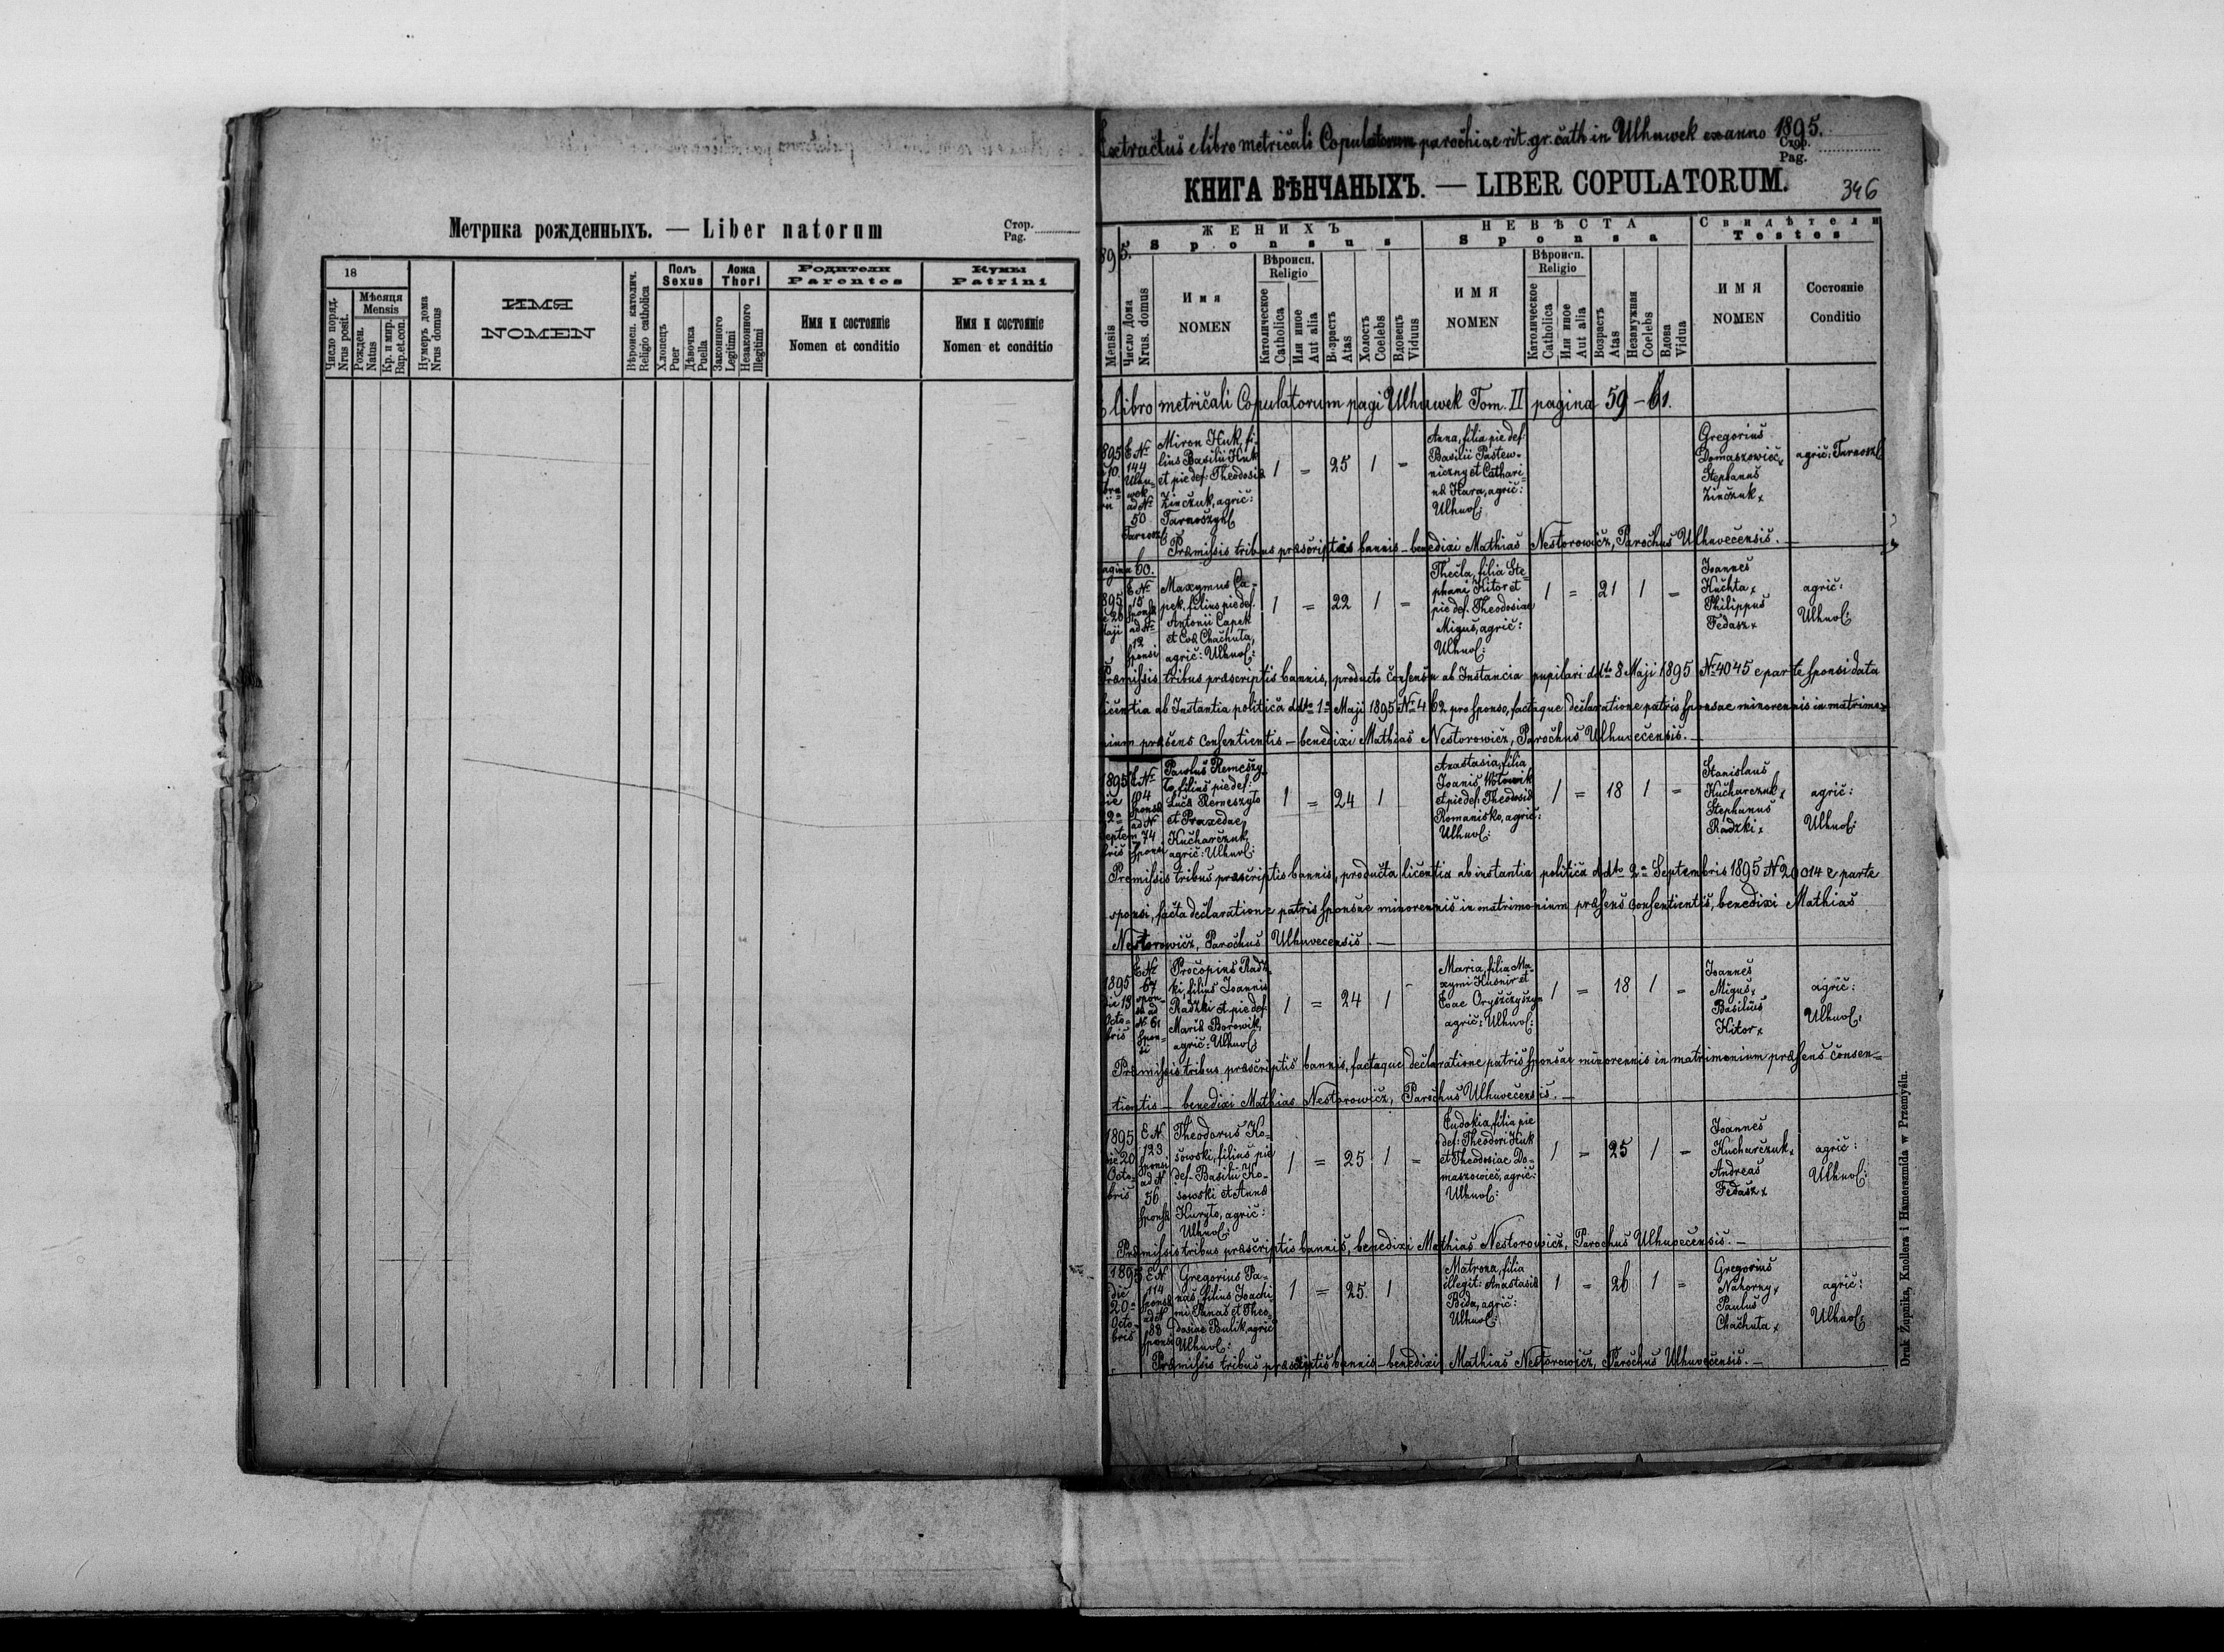 Метрика рожденныхъ. — Liber natorum
Стор.
Pag.
18
Число поряд.
Nrus posit.
Мѣсяця
Mensis
Рожден.
Natus
Кр. и мир.
Bap. et con.
Нумеръ дома
Nrus domus
ИМЯ
NOMEN
Вѣроисп. католич.
Religio catholica
Полъ
Sexus
Хлопецъ
Puer
Дѣвочка
Puella
Ложа
Thori
Законного
Legitimi
Незаконного
Illegitimi
Родители
Parentes
Имя и состояніе
Nomen et conditio
Кумы
Patrini
Имя и состояніе
Nomen et conditio
Extractus e libro metricali Copulatorum parochiae rit. gr. cath in Ulhuwek ex anno 1895.
Стор.
Pag.
КНИГА ВѢНЧАНЫХЪ. — LIBER COPULATORUM.
346
895.
Mensis
Число Дома
Nrus. domus
ЖЕНИХЪ
Sponsus
Имя
NOMEN
Вѣроисп.
Religio
Католическое
Catholica
Или иное
Aut alia
Возрастъ
Atas
Холостъ
Coelebs
Вдовецъ
Vidus
НЕВѢСТА
Sponsa
ИМЯ
NOMEN
Вѣроисп.
Religio
Католическое
Catholica
Или иное
Aut alia
Возрастъ
Atas
Незамужная
Coelebs
Вдова
Vidua
Свидѣтели
Testes
ИМЯ
NOMEN
Состояніе
Conditio
E libro metricali Copulatorum pagi Ulhuwek Tom. II pagina 59 – 61.
1895
E Nr
144
Ulhu-
wek
ad Nr
50
Tarnosz
Miron Huk, fi-
lius Basilii Huk
et pie def: Theodosia
Zinczuk, agric:
Tarnoszyn
1 = 25 1 =
Anna, filia pie def
Basilii Pastew-
niczny et Cathari-
na Hara, agric:
Ulhuv:
Gregorius
Domaszowicz x
Stephanus
Zinczuk x
agric: Tarnosz
Præmissis tribus præscriptis bannis – benedixi Mathias Nestorowicz, Parochus Ulhuvecensis. —
pagina 60.
1895
26
Maji
E Nr
15
sponsa
ad Nr
12
sponsi
Maxymus Ca-
pek, filius pie def.
Antonii Capek
et Eva Chachuta,
agric: Ulhuv:
1 = 22 1 =
Thecla, filia Ste-
phani Kitor et
pie def. Theodosiae
Migus, agric:
Ulhuv:
1 = 21 1 =
Joannes
Kuchta x
Philippus
Fedasz x
agric:
Ulhuv:
Præmissis tribus præscriptis bannis, producto consensu ab Instancia pupilari ddto 8 Maji 1895 No 4045 e parte sponsi data
licentia ab Instantia politica ddto 1a Maji 1895 No 462 pro sponso, factaque declaratione patris sponsae minorennis in matrimo-
nium præsens consentientis – benedixi Mathias Nestorowicz, Parochus Ulhuvecensis. —
1895
die
22a
Septem
bris
E Nr
104
sponsa
ad N
74
sponsi
Pawlus Remeszy-
ło, filius pie def.
Luca Remeszyło
et Praxedae
Kucharczuk
agric: Ulhuv:
1 = 24 1
Anastasia, filia
Joanis Włowik
et pie def: Theodosia
Romanisko, agric:
Ulhuv:
1 = 18 1 =
Stanislaus
Kucharczuk x
Stephanus
Radzki x
agric:
Ulhuv:
Premissis tribus præscriptis bannis, producta licentia ab instantia politica ddto 2a Septembris 1895 N 20014 e parte
sponsi, facta declaratione patris sponsae minorennis in matrimonium præsens consentientis, benedixi Mathias
Nestorowicz, Parochus Ulhuvecensis. —
1895
die 13
Octo-
bris
E No
67
spon-
sa ad
N. 61
spon-
si
Procopius Radz-
ki, filius Joannis
Radzki et pie def.
Maria Borowik,
agric: Ulhuv:
1 = 24 1 -
Maria, filia Ma-
xymi Kusnir et
Evae Oryszczyszyn
agric: Ulhuv:
1 = 18 1 =
Joannes
Migus x
Basilius
Kitor x
agric:
Ulhuv:
Præmissis tribus præscriptis bannis, factaque declaratione patris sponsae minorennis in matrimonium præsens consen-
tientis – benedixi Mathias Nestorowicz, Parochus Ulhuvecensis. —
1895
die 20
Octo-
bris
E N
123
sponsi
ad N
56
sponsa
Theodorus Ko-
sowski, filius pie
def. Basilii Ko-
sowski et Anna
Kuryło, agric:
Ulhuv:
1 = 25 1 =
Eudokia, filia pie
def: Theodori Huk
et Theodosiae Do-
maszowicz, agric:
Ulhuv:
1 = 25 1 =
Joannes
Kucharczuk x
Andreas
Fedasz x
agric:
Ulhuv:
Præmissis tribus præscriptis bannis, benedixi Mathias Nestorowicz, Parochus Ulhuvecensis. —
1895
die
20a
Octo-
bris
E N
114
sponsa
ad N
88
sponsi
Gregorius Pa-
nas, filius Joachi-
mi Panas et Theo-
dosiae Bulik, agric
Ulhuv:
1 = 25 1
Matrona, filia
illegit: Anastasia
Bida, agric:
Ulhuv:
1 = 26 1 =
Gregorius
Nahorny x
Paulus
Chachuta x
agric:
Ulhuv:
Præmissis tribus præscriptis bannis – benedixi Mathias Nestorowicz, Parochus Ulhuvecensis. —
Druk Żupnika, Knollera i Hamerszmida w Przemyślu.